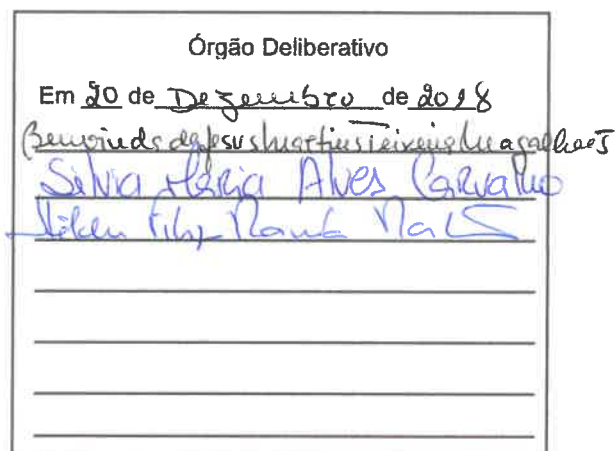 Órgão Deliberativo
Em 20 de Dezembro de 2018
Benvinda de Jesus Martins Teixeira Magalhães
Silvia Maria Alves Carvalho
Filipe